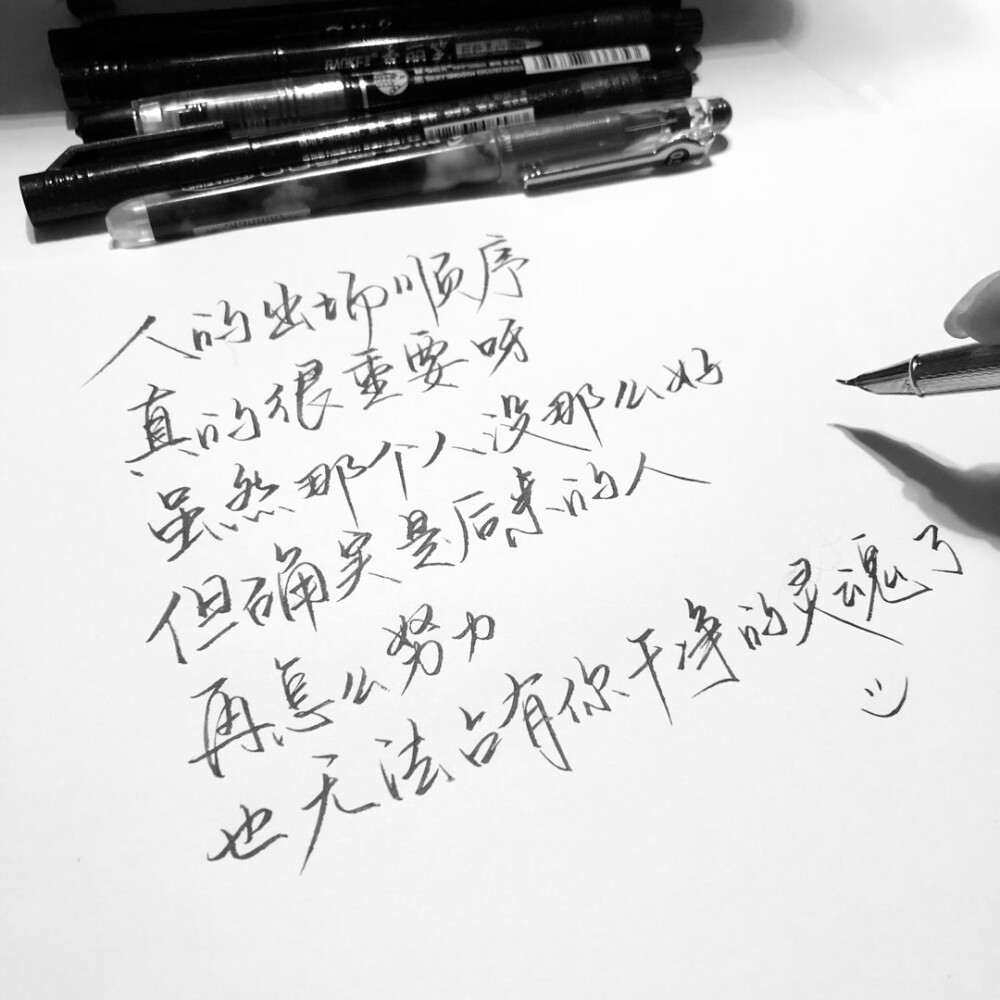 BAOKE
人的出场顺序
真的很重要呀
虽然那个人没那么好
但确实是后来的人
再怎么努力
也无法占有你干净的灵魂了